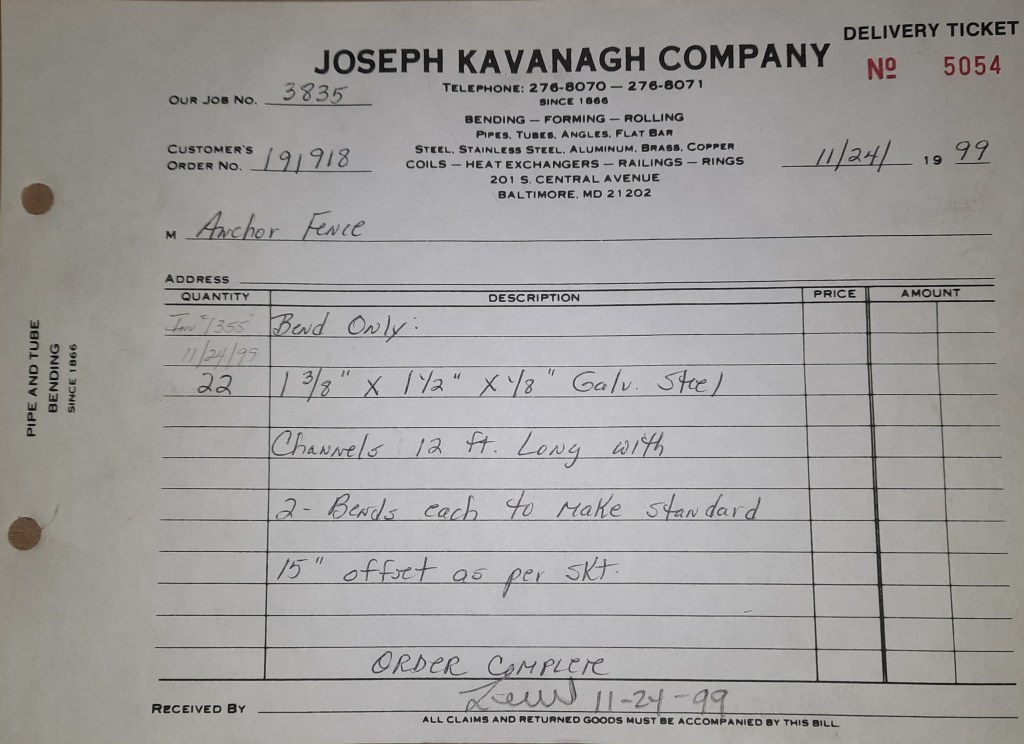 DELIVERY TICKET
JOSEPH KAVANAGH COMPANY
Nº 5054
TELEPHONE: 276-8070 — 276-8071
SINCE 1866
OUR JOB NO. 3835
BENDING — FORMING — ROLLING
PIPES, TUBES, ANGLES, FLAT BAR
STEEL, STAINLESS STEEL, ALUMINUM, BRASS, COPPER
COILS — HEAT EXCHANGERS — RAILINGS — RINGS
201 S. CENTRAL AVENUE
BALTIMORE, MD 21202
CUSTOMER'S
ORDER NO. 191918
11/24/ 19 99
M Anchor Fence
ADDRESS
QUANTITY DESCRIPTION PRICE AMOUNT
1355 Bend Only:
11/24/99
22 1 3/8" X 1 1/2" X 1/8" Galv. Steel
Channels 12 ft. Long with
2- Bends each to make standard
15" offset as per skt.
ORDER COMPLETE
RECEIVED BY 11-24-99
ALL CLAIMS AND RETURNED GOODS MUST BE ACCOMPANIED BY THIS BILL.
PIPE AND TUBE
BENDING
SINCE 1866